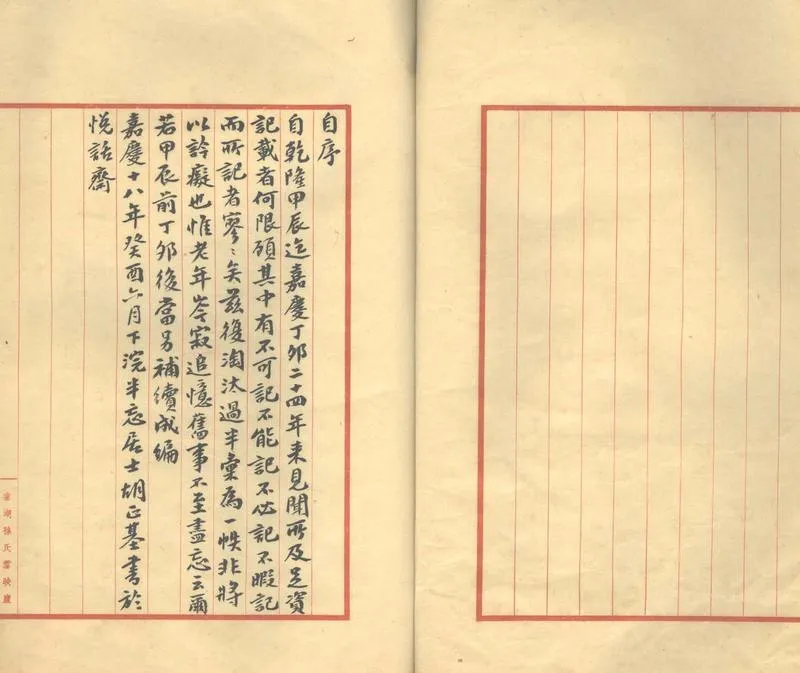 自序
自乾隆甲辰迄嘉慶丁卯二十四年來見聞所及足資
記載者何限顧其中有不可記不能記不必記不暇記
而所記者寥〻矣茲復淘汰過半彙為一帙非將
以詅癡也惟老年岑寂追憶舊事不至盡忘云爾
若甲辰前丁卯後當另補續成編
嘉慶十八年癸酉六月下浣半忘居士胡正基書於
悅話齋
湖孫氏雲映廬